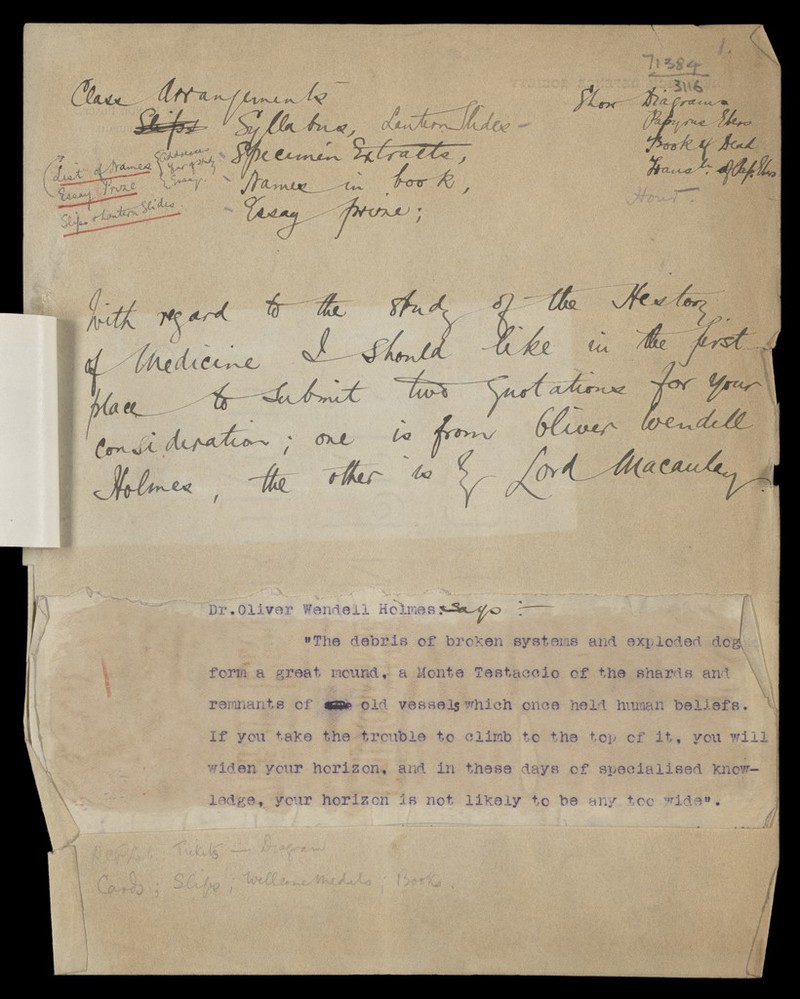 1.
71384
3116
Class Arrangements
Slips Syllabus, Lantern Slides -
Specimen Extracts,
Names in book,
Essay prize;
Show Diagrams
Papyrus Ebers
Book of Dead
Trans.ln of Pap. Ebers
? List of Names
Essay Prize
Slips & Lantern Slides.
With regard to the study of the History
of Medicine I should like in the first
place to submit two quotations for your
consideration; one is from Oliver Wendell
Holmes, the other is by Lord Macaulay.
Dr.Oliver Wendell Holmes: says :-
"The debris of broken systems and exploded dog
form a great mound, a Monte Testaccio of the shards and
remnants of old vessels which once held human beliefs.
If you take the trouble to climb to the top of it, you will
widen your horizon, and in these days of specialised know-
ledge, your horizon is not likely to be any too wide".
Tickets - Diagram
Cards; Slips; Wellcome Medals; Books.